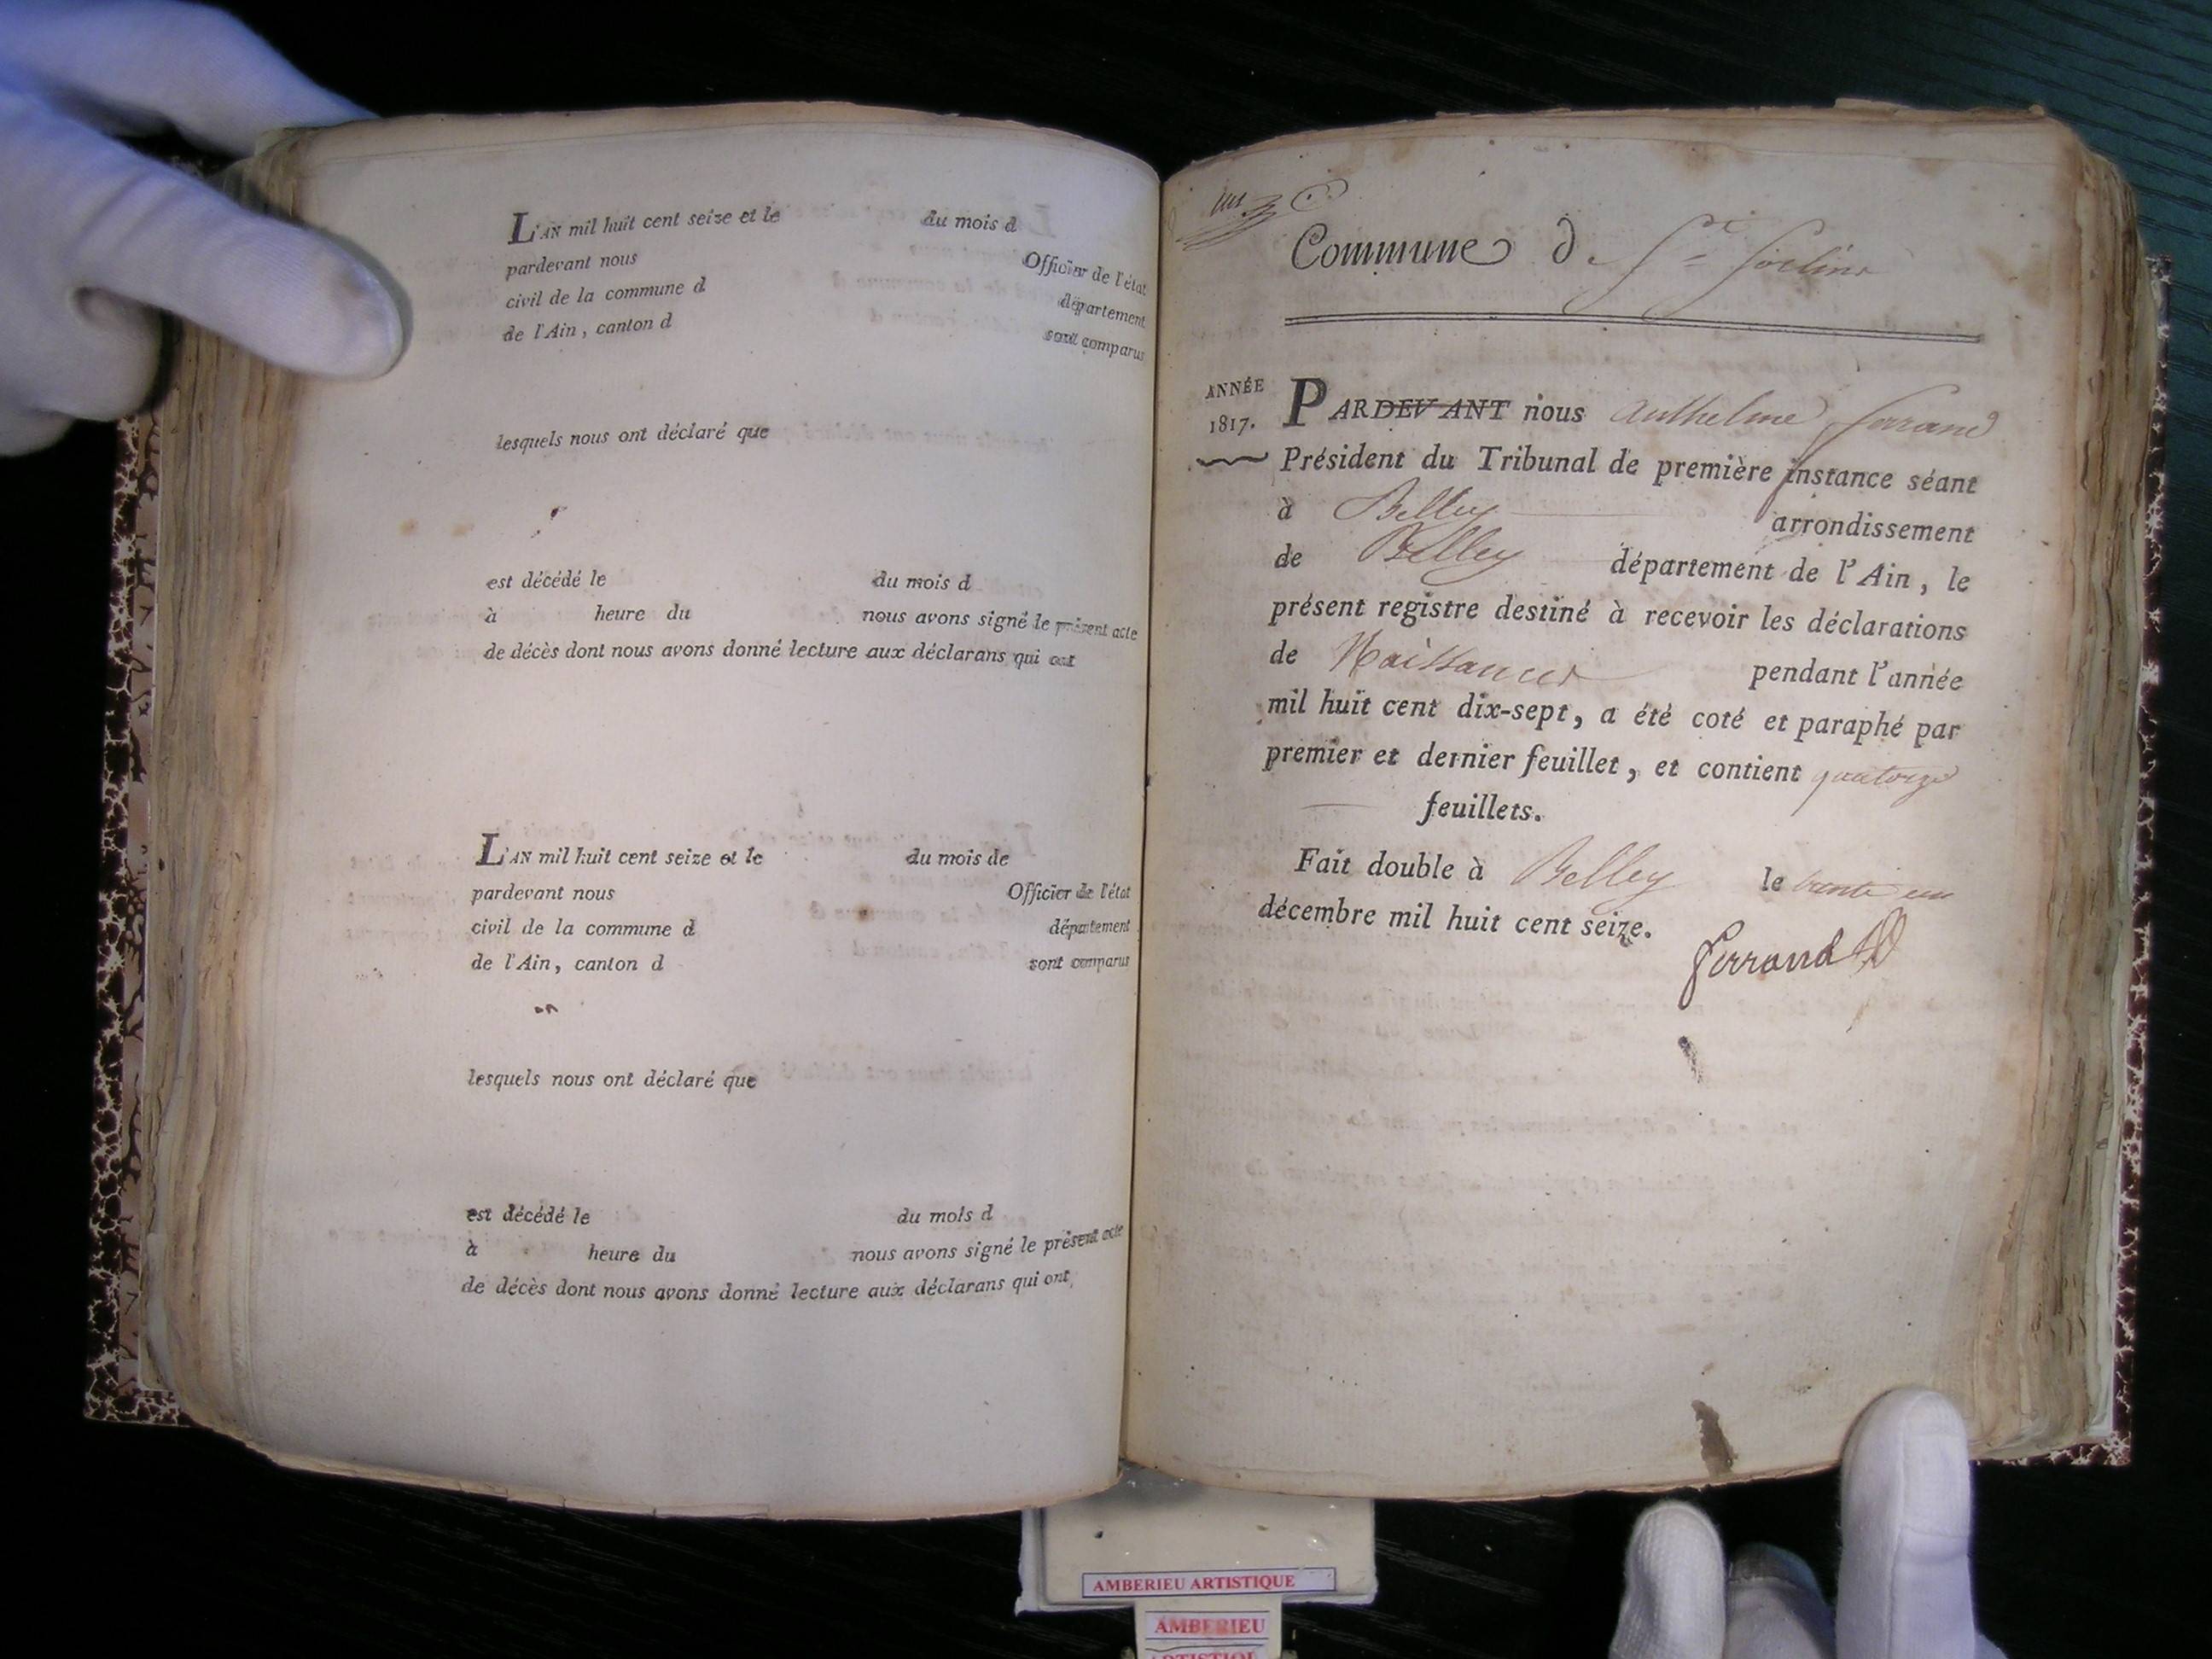 L'AN mil huit cent seize et le du mois d
pardevant nous Officier de l'état
civil de la commune d département
de l'Ain, canton d sont comparus
lesquels nous ont déclaré que
est décédé le du mois d
à heure du nous avons signé le présent acte
de décès dont nous avons donné lecture aux déclarans qui ont
L'AN mil huit cent seize et le du mois de
pardevant nous Officier de l'état
civil de la commune d département
de l'Ain, canton d sont comparus
lesquels nous ont déclaré que
est décédé le du mois d
à heure du nous avons signé le présent acte
de décès dont nous avons donné lecture aux déclarans qui ont
Commune de St
ANNÉE
1817.
PARDEVANT nous Anthelme ferrand
Président du Tribunal de première instance séant
à Belley arrondissement
de Belley département de l'Ain, le
présent registre destiné à recevoir les déclarations
de Naissances pendant l'année
mil huit cent dix-sept, a été coté et paraphé par
premier et dernier feuillet, et contient quatorze
feuillets.
Fait double à Belley le trente un
décembre mil huit cent seize.
ferrand
AMBERIEU ARTISTIQUE
AMBERIEU